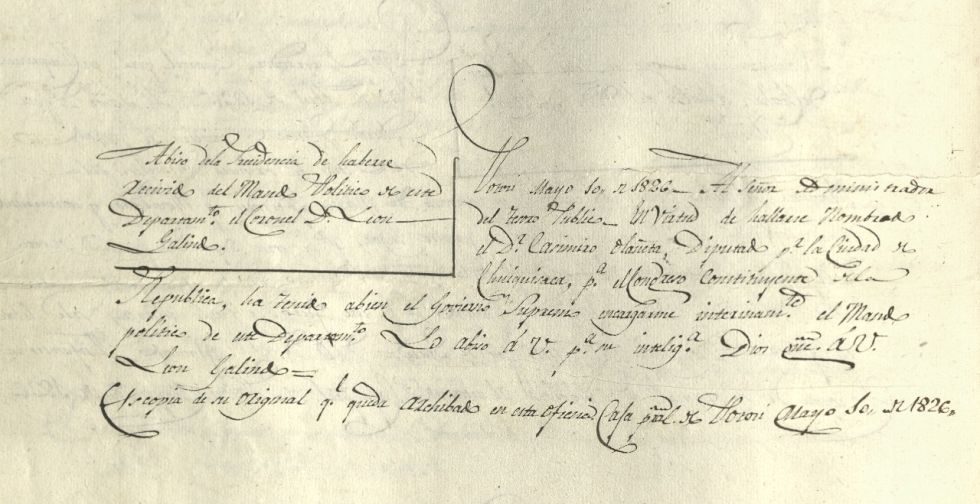 Abiso dela Presidencia de haberse
recivido del Mando Politico de este
Departam.to el Coronel D.n Leon
Galindo.
Potosi Mayo 10, de 1826 — Al Señor Administrador
del Tesoro Publico — En Virtud de hallarse Nombrado
el D.r Casimiro Olañeta, Diputado p.r la Ciudad de
Chuquisaca, p.a el Congreso Constituyente dela
Republica, ha tenido abien el Govierno Supremo encargarme interinam.te el Mando
politico de este Departam.to Lo abiso á V. p.a su intelig.a Dios gũe. á V.
Leon Galindo =
Es copia de su Original q.e queda Archibado en esta Oficina. Casa pral. de Potosi Mayo 10, de 1826,